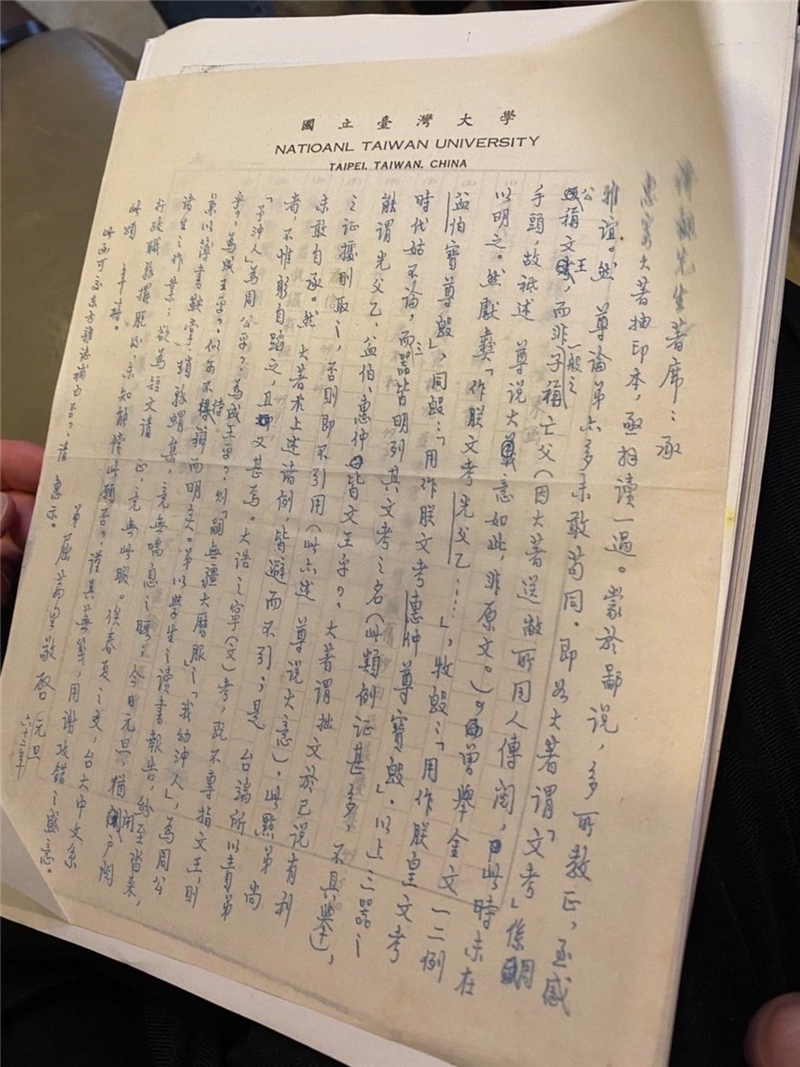 國立臺灣大學
NATIOANL TAIWAN UNIVERSITY
TAIPEI, TAIWAN, CHINA
先生著席：承
惠寄大著抽印本，亟拜讀一過。蒙於鄙說，多所教正，至感
雅誼。然 尊論第六多未敢苟同．即如大著謂「文考」係
公稱文王，而非一般之子稱亡父（因大著送敝所同人傳閱，此時未在
手頭，故祗述 尊說大意如此，非原文。）曾舉金文一二例
以明之。然獻彝「作朕文考光父乙……」，牧𣪘：「用作朕皇文考
益伯寶尊𣪘」，同𣪘：「用作朕文考惠仲尊寶𣪘」．以上三器之
時代姑不論，而器皆明列其文考之名（此類例證甚多，不具舉），
能謂光父乙、益伯、惠仲皆文王乎？大著謂拙文於己說有利
之證據則取之，否則即不引用（此亦述 尊說大意）．此點弟尚
未敢自承。然大著於上述諸例，皆避而不引；是 台端所以責弟
者，不惟躬自蹈之，且又甚焉。大誥之寧（文）考，既不專指文王，則
「予沖人」為周公乎？為成王乎？則「嗣無疆大曆服」之「我幼沖人」，為周公
乎？為成王乎？似可不待辯而明矣。弟以學生之讀書報告，紛至沓來，
兼以簿書鞅掌，瑣務蝟集，竟無喘息之暇。今日元旦，猶閉戶閱
諸生之作業；欲為短文請正，竟無此暇。俟春夏之交，台大中文系
行政職務擺脫後，未知能償此願否？謹具蕪箋，用謝攻錯之盛意。
此頌 年禧。
弟屈萬里敬啓 元旦
六十二年
此函可否東方雜誌補白否？請 惠示。